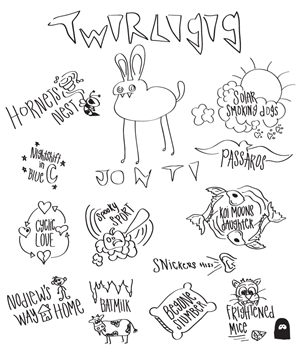 TWIRLIGIG
HORNETS
NEST
SOLAR
SMOKING DOGS
Nightshift in
Blue C
PASSAROS
JONTI
CYCLIC
LOVE
SPOOKY
SPORT
KOI MOONS
DAUGHTER
SNICKERS
NODIEWS
WAY HOME
BATMILK
BEGONE
SLUMBER
FRIGHTENED
MICE